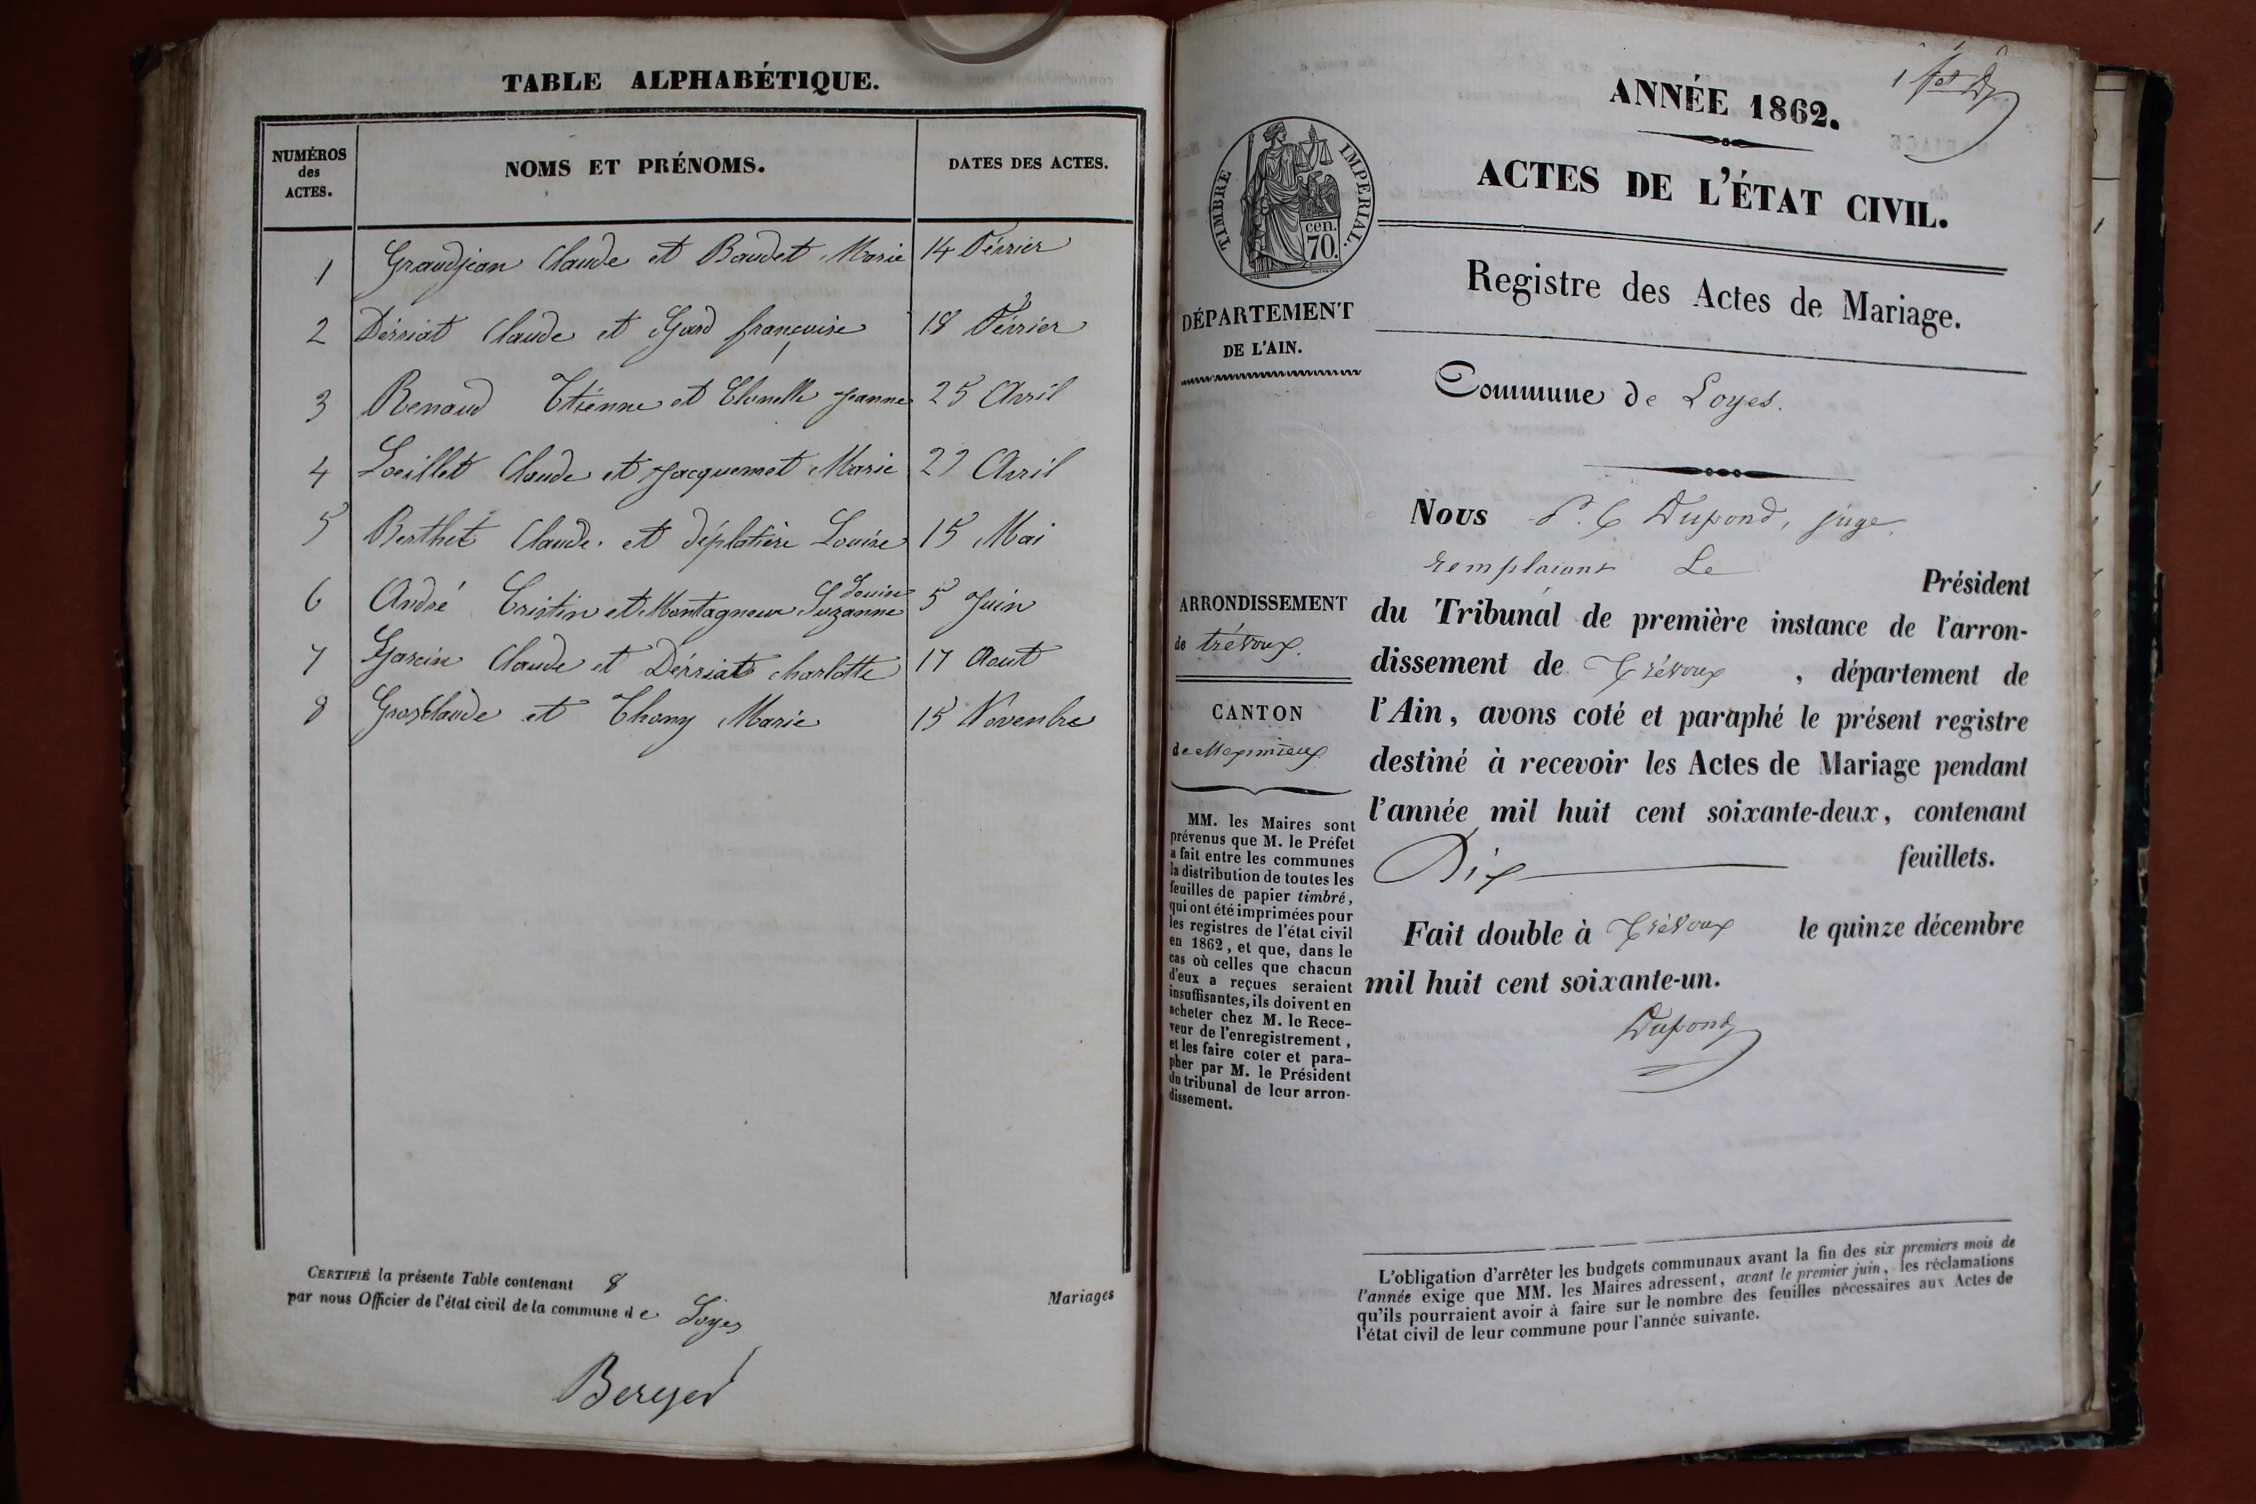 TABLE ALPHABÉTIQUE.
NUMÉROS
des
ACTES.
NOMS ET PRÉNOMS.
DATES DES ACTES.
1 Grandjean Claude et Baudet Marie 14 Février
2 Dérriat Claude et Gard françoise 18 Février
3 Renaud Etienne et Jeanne 25 Avril
4 Loeillet Claude et Jacquemet Marie 29 Avril
5 Berthet Claude et déplatière Louise 15 Mai
6 André Cristin et Montagneux Suzanne 5 Juin
7 Garcin Claude et Dérriat charlotte 17 Aout
8 Gros Claude et Thony Marie 15 Novenbre
CERTIFIÉ la présente Table contenant 8 Mariages
par nous Officier de l'état civil de la commune de Loyes
1 fet
ANNÉE 1862.
ACTES DE L'ÉTAT CIVIL.
TIMBRE IMPERIAL.
cen.
70.
Registre des Actes de Mariage.
DÉPARTEMENT
DE L'AIN.
Commune de Loyes.
Nous Dupond, juge
remplaçant Le Président
ARRONDISSEMENT
de trévoux.
CANTON
de Meximieux
du Tribunal de première instance de l'arron-
dissement de Trévoux, département de
l'Ain, avons coté et paraphé le présent registre
destiné à recevoir les Actes de Mariage pendant
l'année mil huit cent soixante-deux, contenant
Dix feuillets.
Fait double à Trévoux le quinze décembre
mil huit cent soixante-un.
Dupond
MM. les Maires sont
prévenus que M. le Préfet
a fait entre les communes
la distribution de toutes les
feuilles de papier timbré,
qui ont été imprimées pour
les registres de l'état civil
en 1862, et que, dans le
cas où celles que chacun
d'eux a reçues seraient
insuffisantes, ils doivent en
acheter chez M. le Rece-
veur de l'enregistrement,
et les faire coter et para-
pher par M. le Président
du tribunal de leur arron-
dissement.
L'obligation d'arrêter les budgets communaux avant la fin des six premiers mois de
l'année exige que MM. les Maires adressent, avant le premier juin, les réclamations
qu'ils pourraient avoir à faire sur le nombre des feuilles nécessaires aux Actes de
l'état civil de leur commune pour l'année suivante.